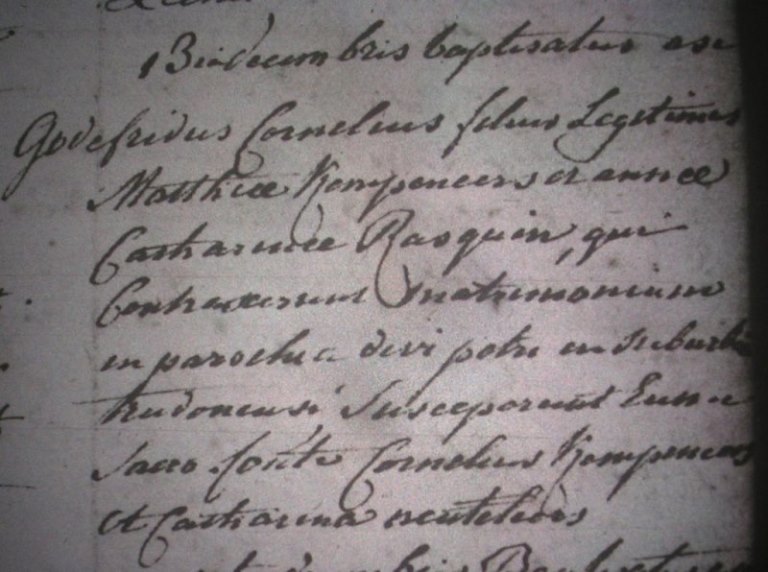 13 decembris baptisatus est
Godefridus Cornelius filius Legitimus
Matthiæ Kompeneers et annæ
Catharinæ Rasquin, qui
Contraxerunt matrimonium
in parochia divi petri in suburbio
trudonensi Susceperunt Eum e
Sacro fonte Cornelius Kompeneers
et Catharina